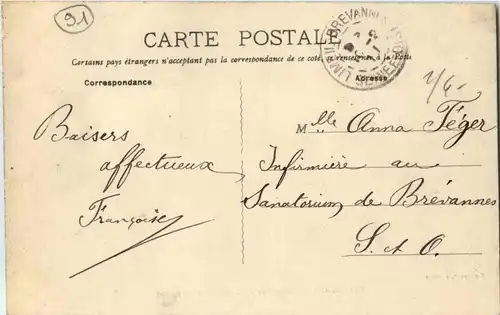 91
CARTE POSTALE
Certains pays étrangers n'acceptant pas la correspondance de ce côté, se renseigner à la Poste
Correspondance
Adresse
LIMEIL BREVANNES
Baisers
affectueux
Françoise
Mlle Anna Féger
Infirmière au
Sanatorium de Brévannes
S. et O.